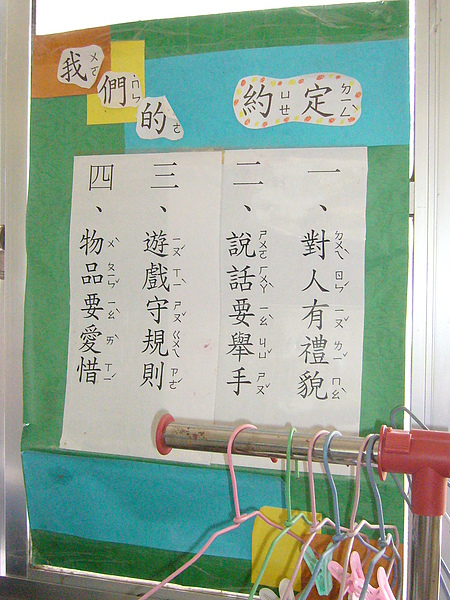 我們的
約定
一、對人有禮貌
二、說話要舉手
三、遊戲守規則
四、物品要愛惜